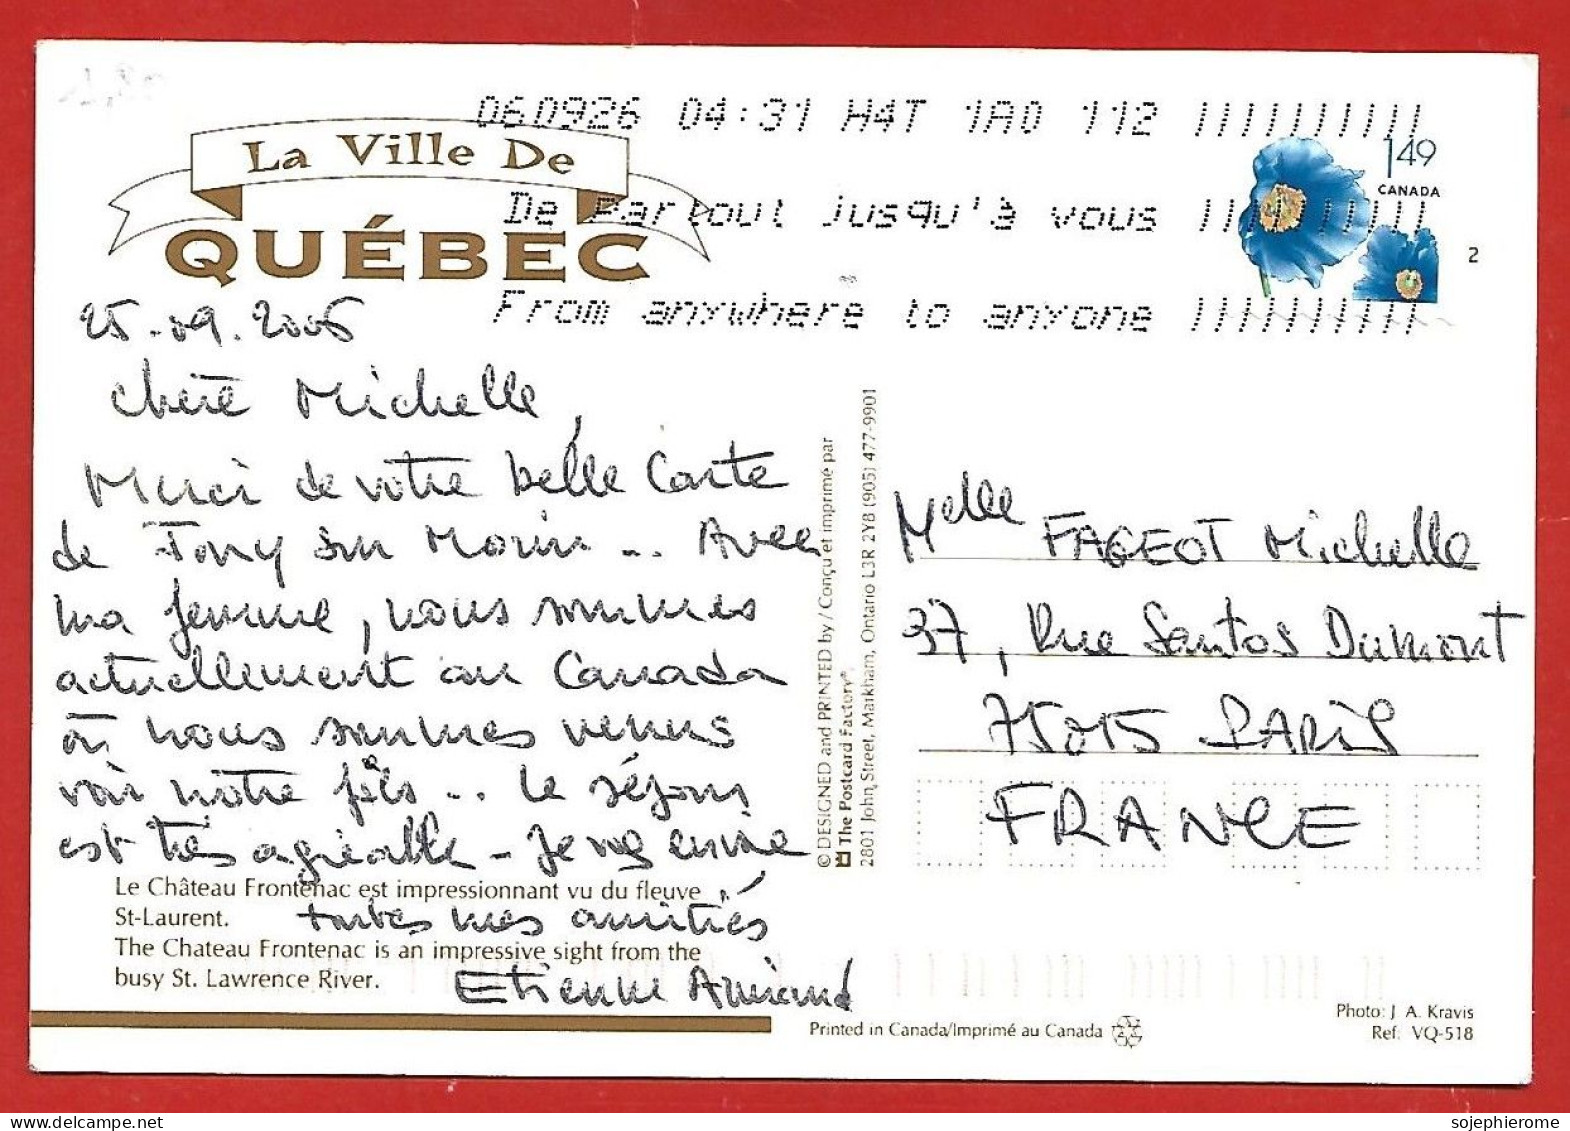 060926 04:31 H4T 1A0 112
La Ville De
QUÉBEC
De Partout jusqu'à vous
From anywhere to anyone
1,49
CANADA
2
25.09.2006
Chère Michelle,
Merci de votre belle Carte
de Jouy sur Morin... Avec
ma femme, nous sommes
actuellement au Canada
où nous sommes venus
voir notre fils... Le séjour
est très agréable - Je vous envoie
toutes mes amitiés
Etienne Amirand
Le Château Frontenac est impressionnant vu du fleuve
St-Laurent.
The Chateau Frontenac is an impressive sight from the
busy St. Lawrence River.
© DESIGNED and PRINTED by / Conçu et imprimé par
The Postcard Factory®
2801 John Street, Markham, Ontario L3R 2Y8 (905) 477-9901
Melle FAGEOT Michelle
37, Rue Santos Dumont
75015 PARIS
FRANCE
Printed in Canada/Imprimé au Canada
Photo: J. A. Kravis
Ref: VQ-518
sojephierome